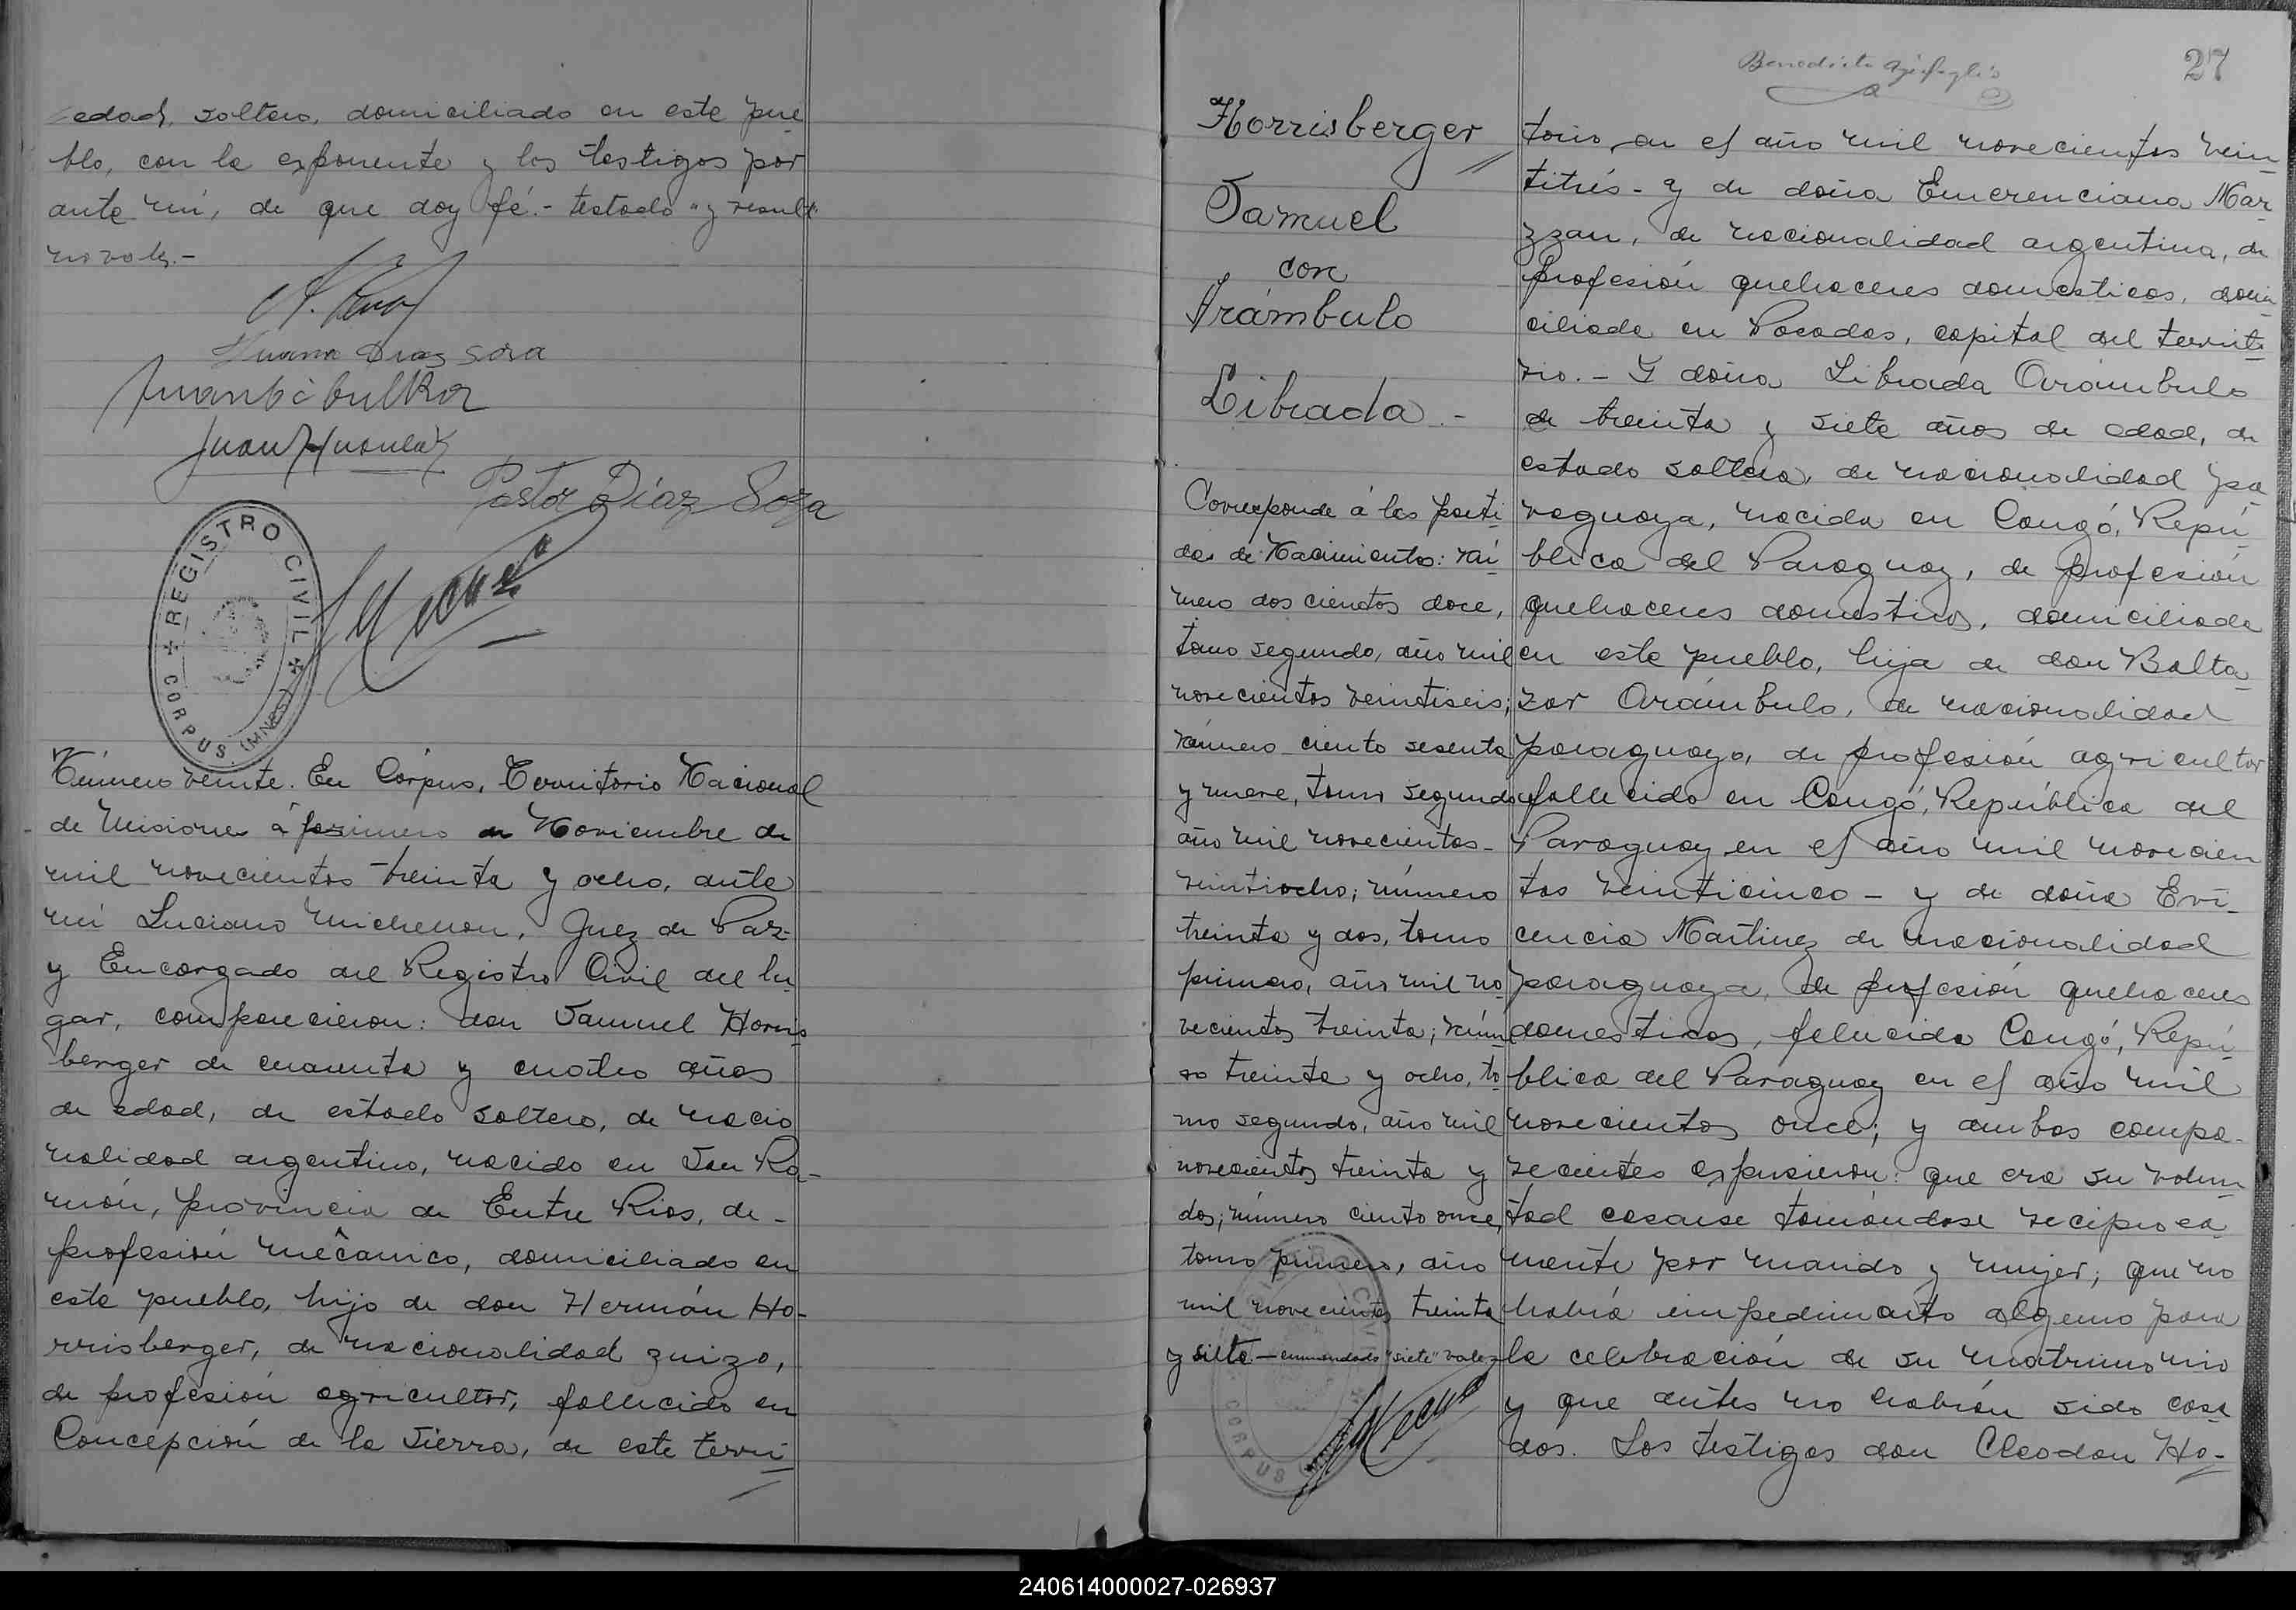 edad, soltero, domiciliado en este pue
blo, con la exponente y los testigos por
ante mí, de que doy fé.- testado "y result"
no vale.-
Juana Diaz Sosa
Pastor Díaz Soza
REGISTRO CIVIL
CORPUS (MNES)
Número veinte. En Córpus, Territorio Nacional
de Misiones á primero de Noviembre de
mil novecientos treinta y ocho, ante
mí Luciano Michenon, Juez de Paz
y Encargado del Registro Civil del lu
gar, comparecieron: don Samuel Horris
berger de cuarenta y cuatro años
de edad, de estado soltero, de nacio
nalidad argentino, nacido en San Ra-
món, provincia de Entre Rios, de-
profesión mecánico, domiciliado en
este pueblo, hijo de don Hermán Ho-
rrisberger, de nacionalidad zuizo,
de profesión agricultor, fallecido en
Concepción de la Sierra, de este terri
27
Horrisberger
Samuel
con
Arámbulo
Librada.-
Corresponde á las parti
das de Nacimientos: nú
mero dos cientos doce,
tomo segundo, año mil
novecientos veintiseis;
número ciento sesenta
y nueve, tomo segundo
año mil novecientos-
veintiocho; número
treinta y dos, tomo
primero, año mil no
vecientos treinta; núme
ro treinta y ocho, to
mo segundo, año mil
novecientos treinta y
dos; número ciento once,
tomo primero, año
mil novecientos treinta
y siete - enmendado "siete" vale
CORPUS
torio, en el año mil novecientos vein
titrés- y de doña Emerenciana Mar
zzan, de nacionalidad argentina, de
profesión quehaceres domesticos, domi
ciliada en Posadas, capital del territo
rio.- Y doña Librada Arámbulo
de treinta y siete años de edad, de
estado soltera, de nacionalidad pa
raguaya, nacida en Cangó, Repú
blica del Paraguay, de profesión
quehaceres domesticos, domiciliada
en este pueblo, hija de don Balta
zar Arámbulo, de nacionalidad
paraguayo, de profesión agricultor
fallecido en Cangó, República del
Paraguay en el año mil novecien
tos veinticinco - y de doña Evi-
cencia Martinez de nacionalidad
paraguaya, de profesión quehaceres
domesticos, felucida Cangó, Repú-
blica del Paraguay en el año mil
novecientos once; y ambos compa-
recientes expusieron: que era su volun
tad casarse tomándose reciproca
mente por marido y mujer; que no
había impedimento alguno para
la celebración de su matrimonio
y que antes no habían sido casa
dos. Los testigos don Cleodon Ho-
240614000027-026937